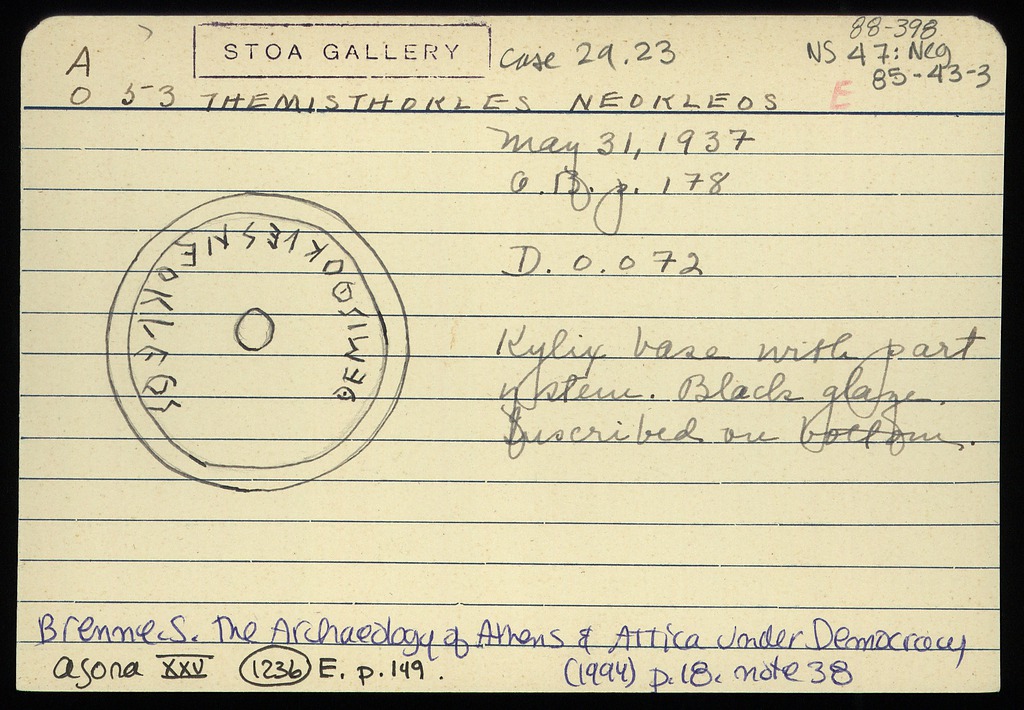 A
O 53 THEMISTHOKLES NEOKLEOS
STOA GALLERY
Case 29.23
88-398
NS 47: Neg
85-43-3
E
May 31, 1937
O.B. p. 178
D. 0.072
Kylix base with part
of stem. Black glaze.
Inscribed on bottom.
Brenne.S. The Archaeology of Athens & Attica under Democracy
(1994) p.18. note 38
Agora XXV 1236 E. p.149.